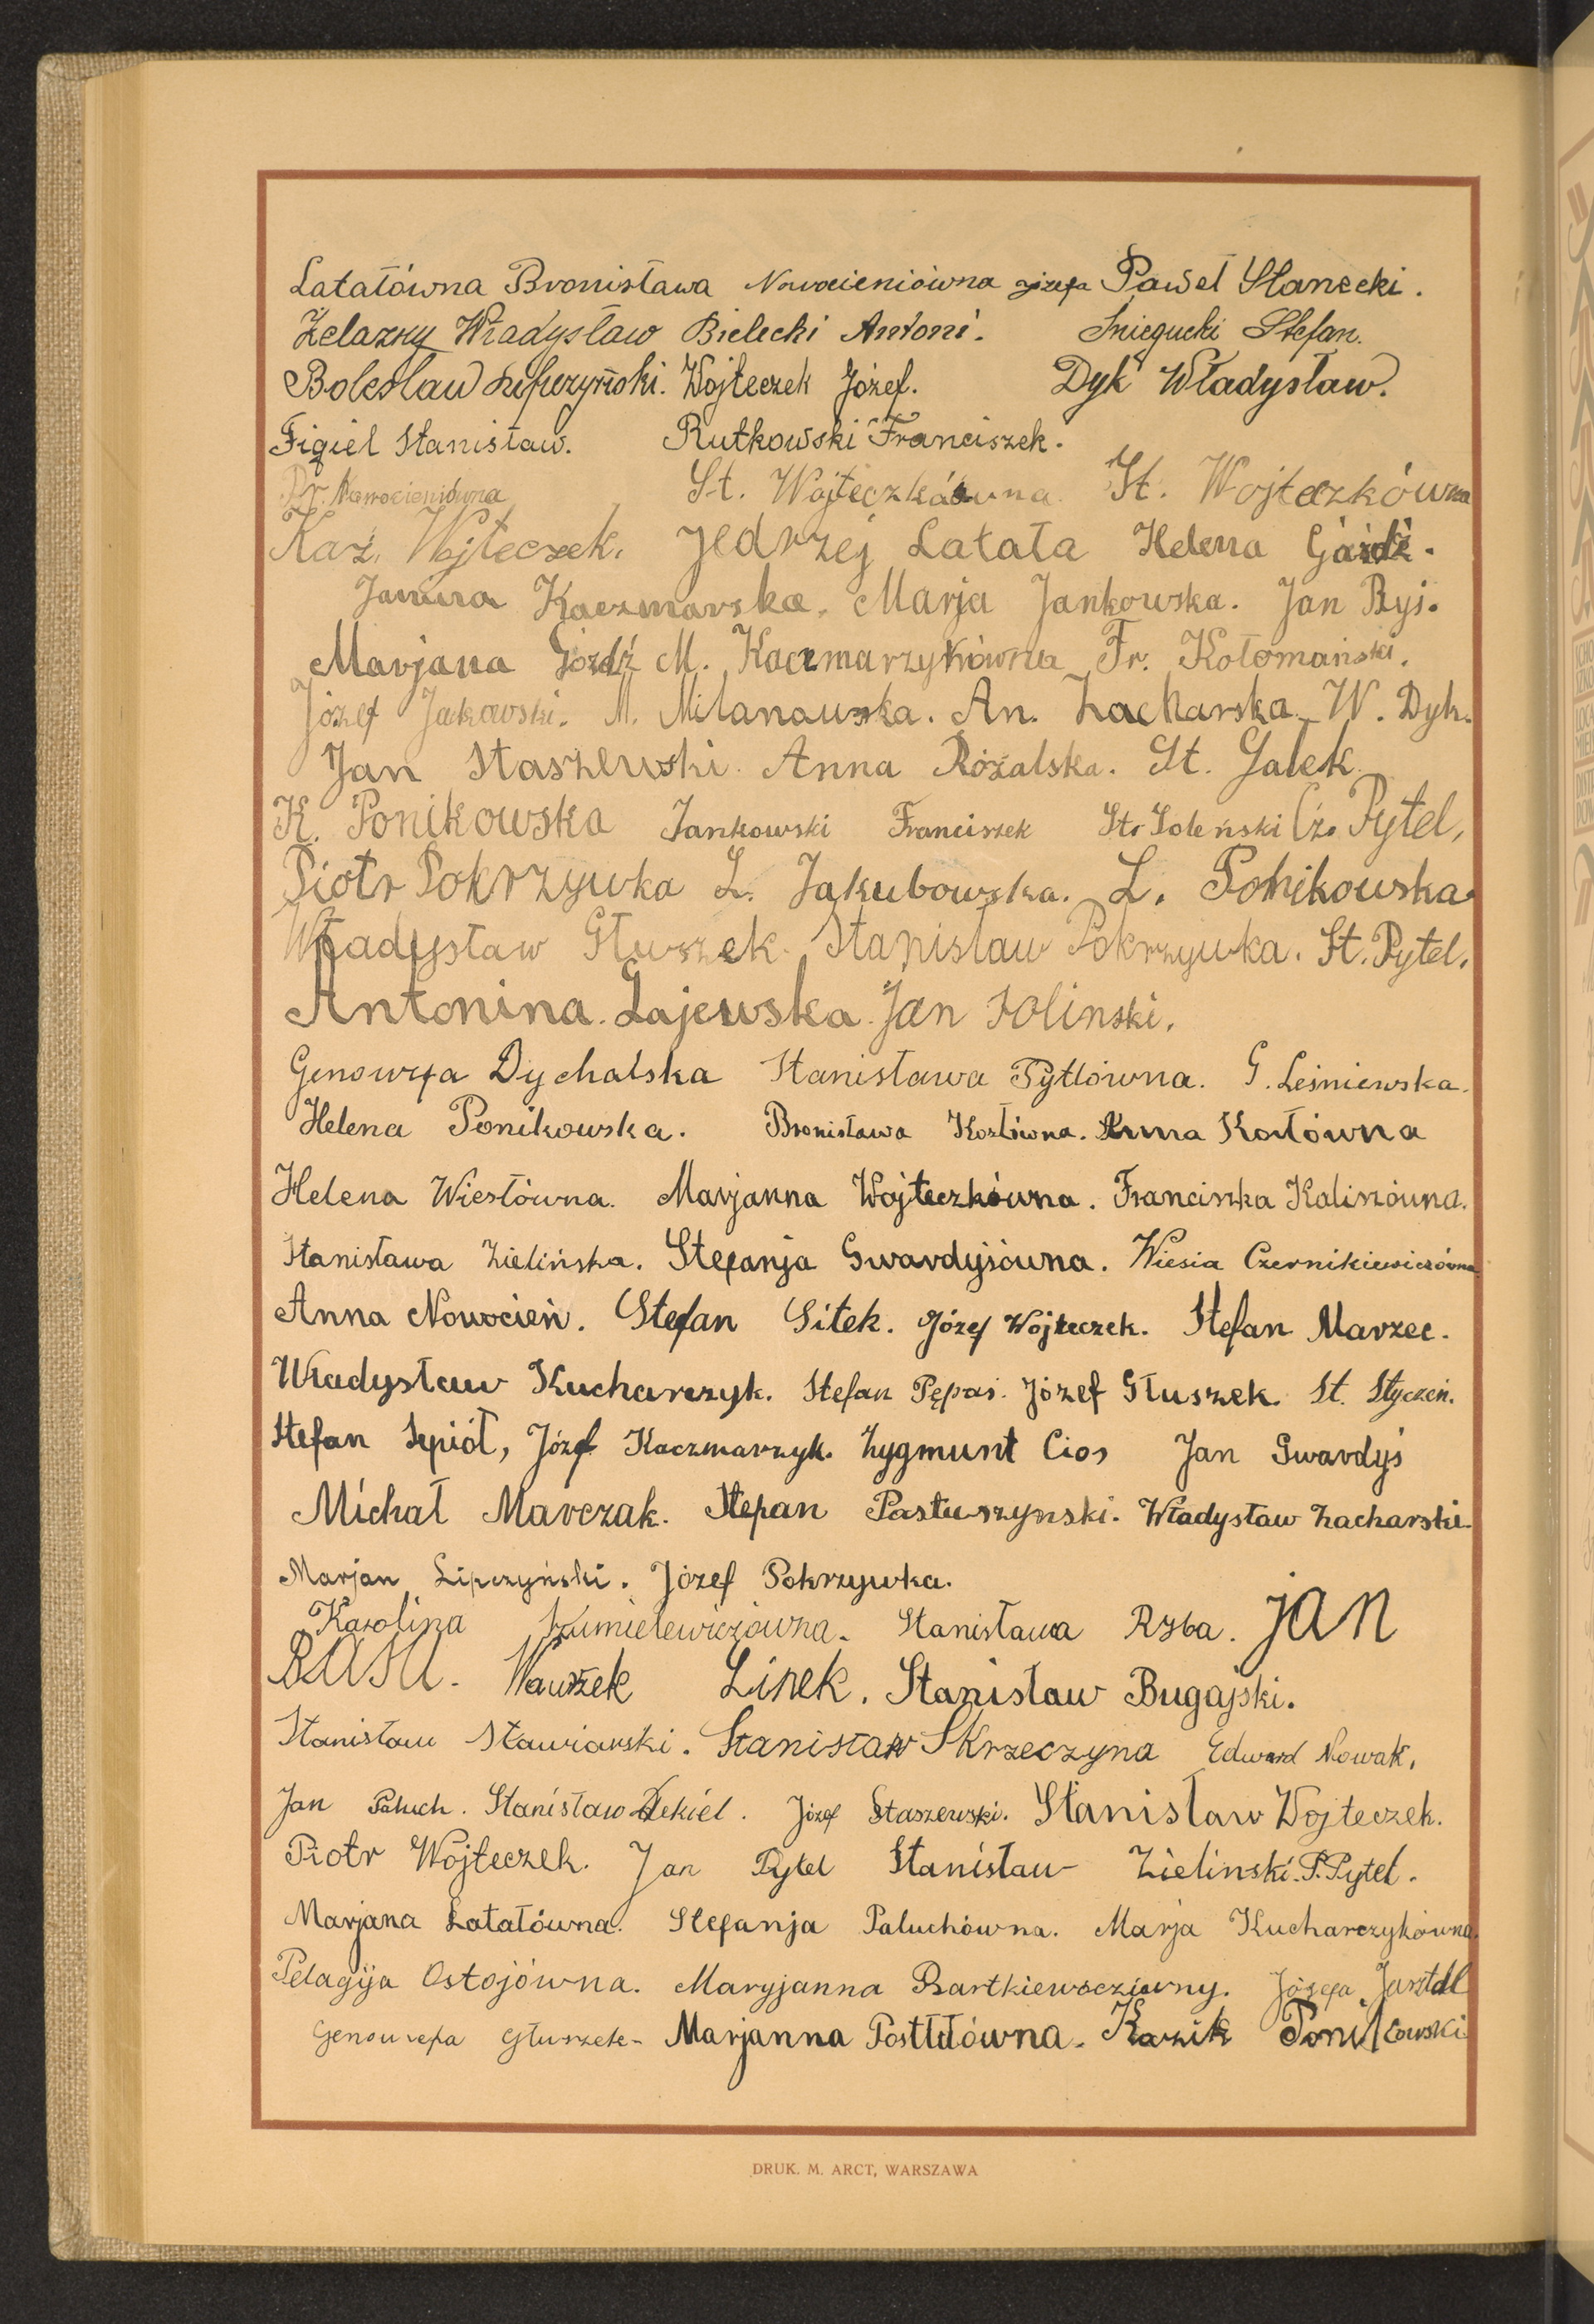 Latałówna Bronisława Nowocieniówna Józefa Paweł Stanecki.
Żelazny Władysław Bielecki Antoni. Śniegucki Stefan.
Bolesław Wojteczek Józef. Dyk Władysław.
Figiel Stanisław. Rutkowski Franciszek.
Nowocieniówna St. Wojteczkówna St. Wojteczkówna
Kaź. Wojteczek. Jedrzej Latała Helena Góźdź.
Janina Kaczmarska. Marja Jankowska. Jan Ryś.
Marjana Góźdź M. Kaczmarzykówna Fr. Kołomański.
Józef Jakowski. M. Milanowska. An. Zacharska W. Dyk.
Jan Staszewski. Anna Rózalska. St. Gałek.
K. Ponikowska Jankowski Franciszek St. Soleński Cz. Pytel,
Piotr Pokrzywka L. Jakubowska. L. Ponikowska
Władysław Głuszek. Stanisław Pokrzywka. St. Pytel.
Antonina. Gajewska. Jan Solinski.
Genowefa Dychalska Stanisława Pytlówna. G. Leśniewska.
Helena Ponikowska. Bronisława Kozłówna. Anna Kozłówna
Helena Wiesłówna. Marjanna Wojteczkówna. Franciszka Kaliszówna.
Stanisława Zielińska. Stefanja Gwardyjówna. Wiesia Czernikiewiczówna
Anna Nowocień. Stefan Sitek. Józef Wojteczek. Stefan Marzec.
Władysław Kucharczyk. Stefan Pępaś. Józef Głuszek. St. Styczeń.
Stefan Sepiół, Józef Kaczmarzyk. Zygmunt Cios Jan Gwardyś
Michał Marczak. Stefan Pastuszynski. Władysław Zacharski.
Marjan Lipczyński. Józef Pokrzywka.
Karolina Stanisława Rzba. jan
BASA. Wawrzek Linek. Stanisław Bugajski.
Stanisław Stawiarski. Stanisław Skrzeczyna Edward Nowak,
Jan Paluch. Stanisław Dekiel. Józef Staszewski. Stanisław Wojteczek.
Piotr Wojteczek. Jan Pytel Stanisław Zielinski. P. Pytel.
Marjana Latałówna. Stefanja Paluchówna. Marja Kucharczykówna.
Pelagija Ostojówna. Maryjanna Józefa
Genowefa Głuszek Marjanna Kazik Ponikowski
DRUK. M. ARCT, WARSZAWA